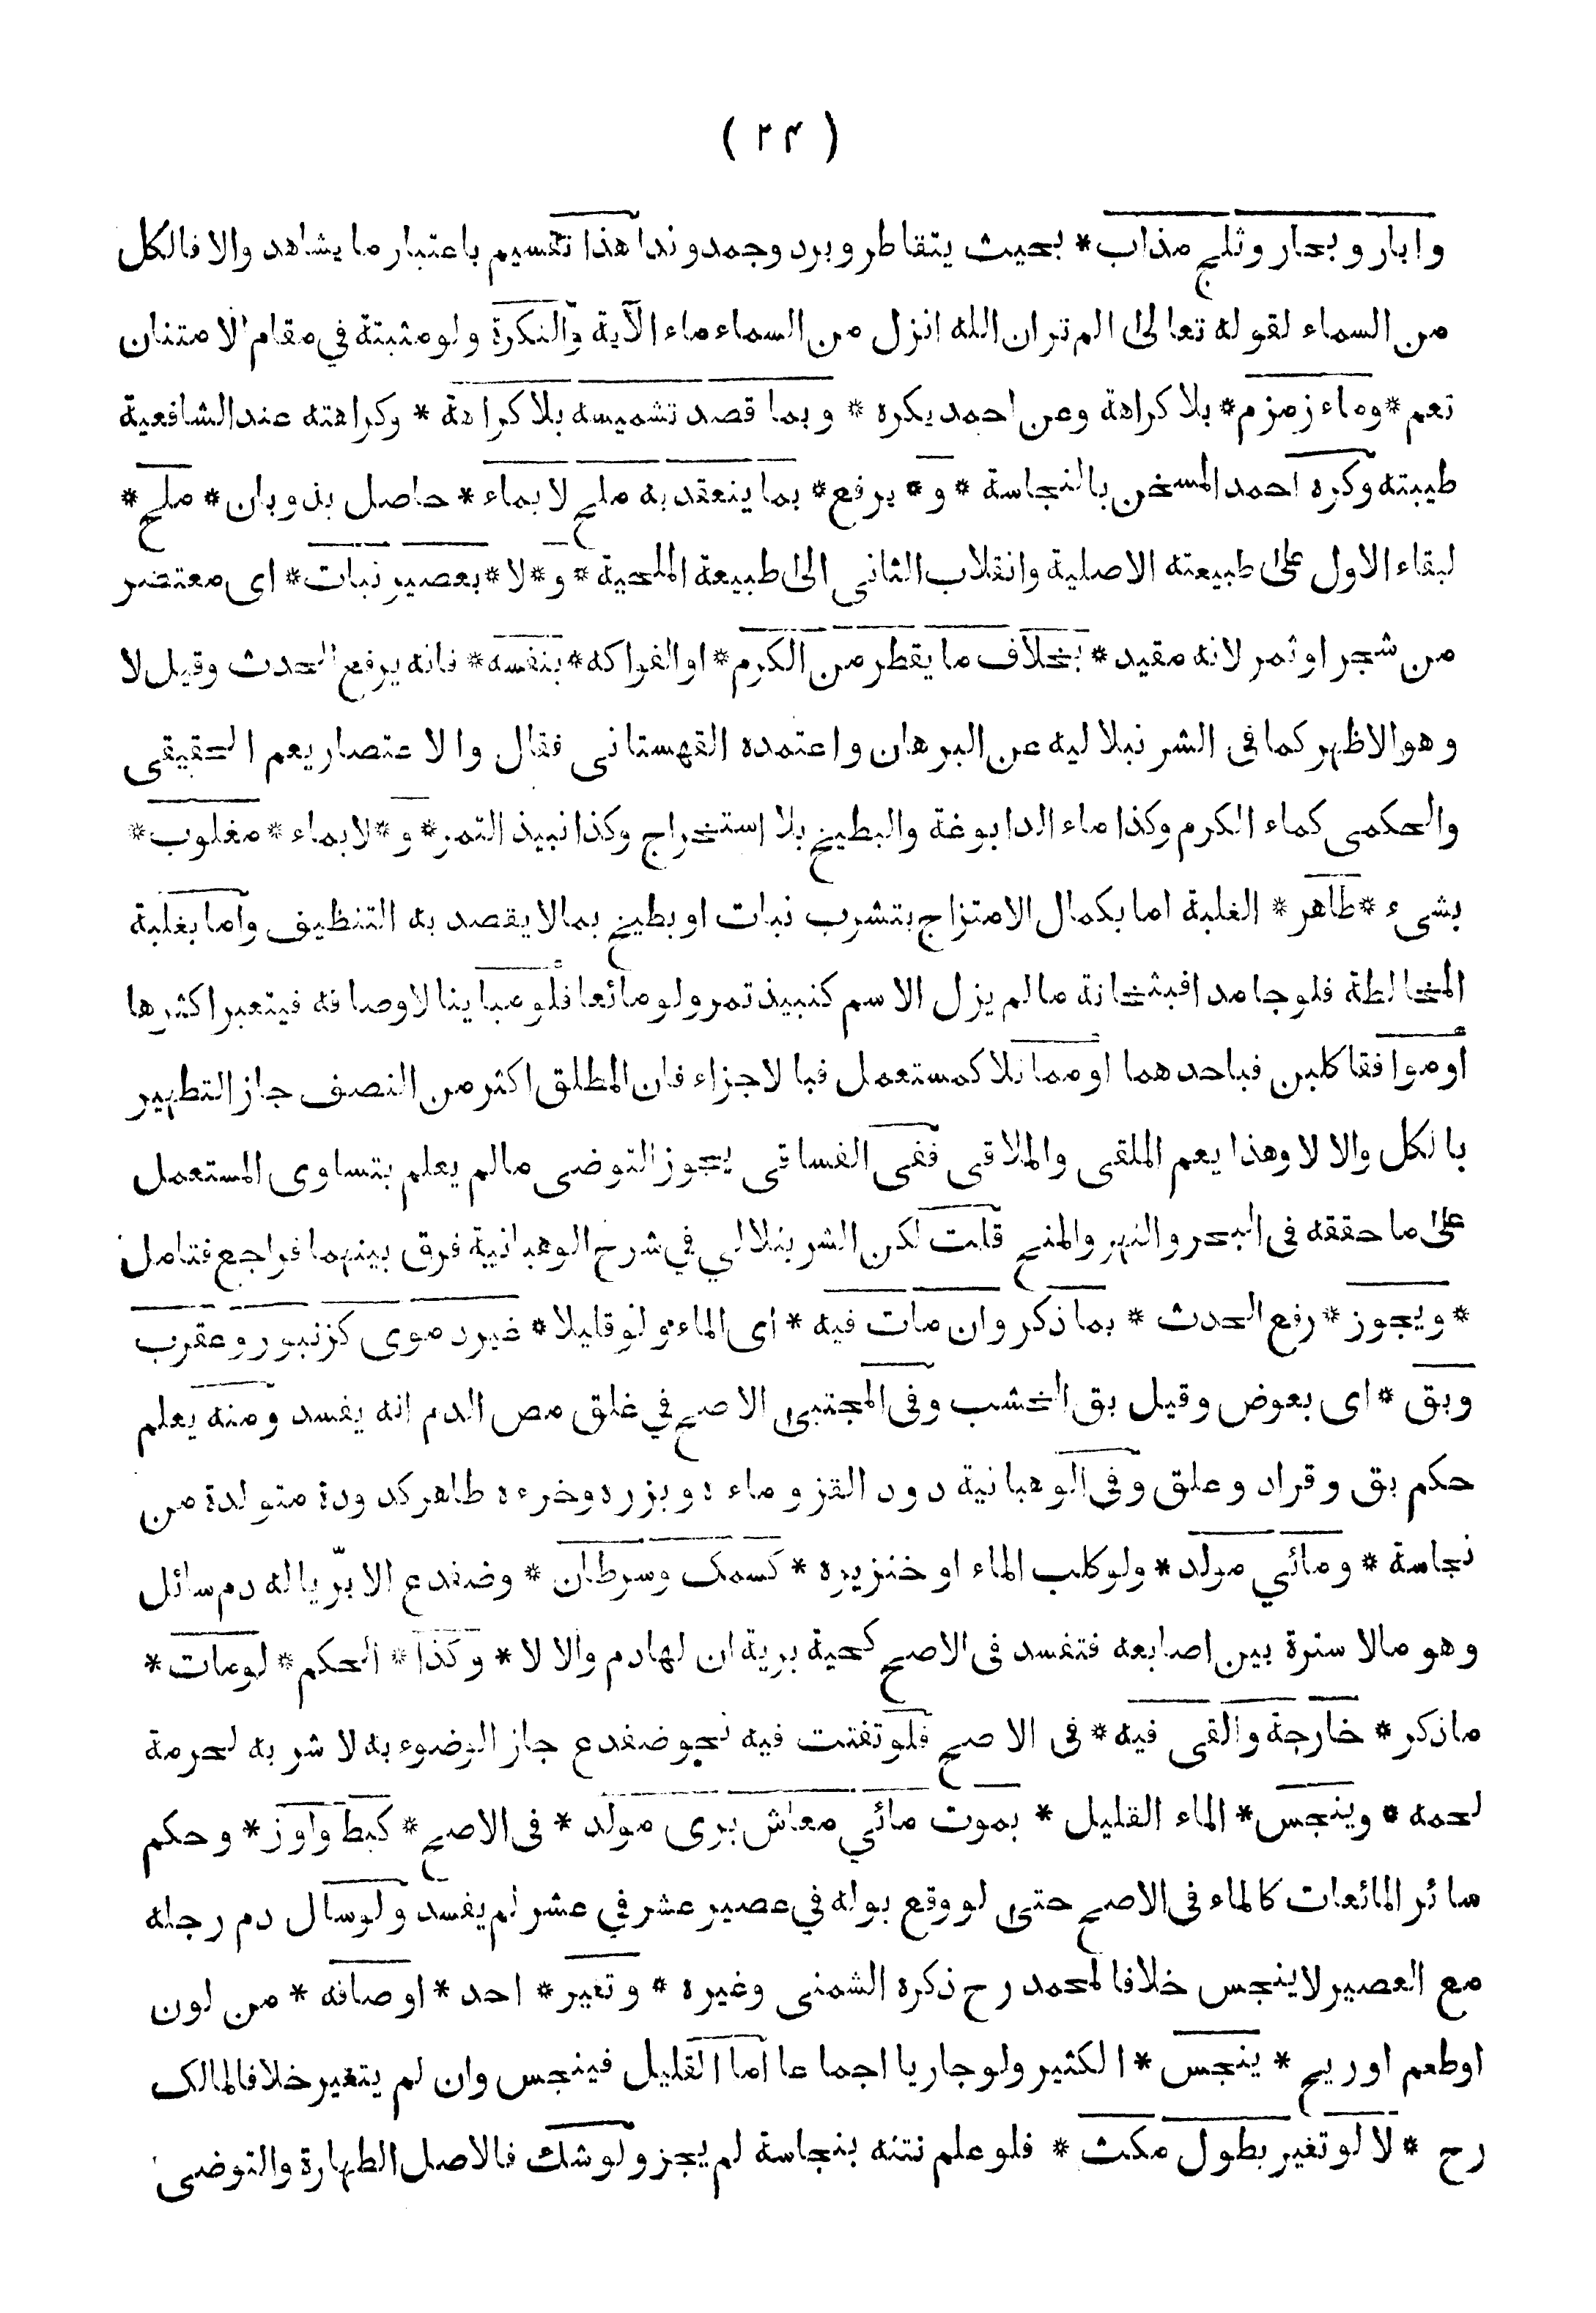 ( ٢٤ )
وابار وبحار وثلج مذاب* بحيث يتقاطر وبرد وجمد وندا هذا تقسيم باعتبار ما يشاهد والا فالكل
من السماء لقوله تعالى الم تر ان الله انزل من السماء ماء الآية والنكرة ولو مثبتة في مقام الامتنان
تعم *وماء زمزم* بلا كراهة وعن احمد يكره * وبما قصد تشميسه بلا كراهة * وكراهته عند الشافعية
طيبته وكره احمد المسخن بالنجاسة *و* يرفع* بما ينعقد به ملح لا بماء* حاصل بذوبان* ملح*
لبقاء الاول على طبيعته الاصلية وانقلاب الثاني الى طبيعة الملحية* و*لا*بعصير نبات* اى معتصر
من شجر او ثمر لانه مقيد* بخلاف ما يقطر من الكرم* او الفواكه* بنفسه* فانه يرفع الحدث وقيل لا
وهو الاظهر كما فى الشرنبلاليه عن البرهان واعتمده القهستانى فقال والاعتصار يعم الحقيقى
والحكمى كماء الكرم وكذا ماء الدابوغة والبطيخ بلا استخراج وكذا نبيذ التمر* و*لا بماء *مغلوب*
بشىء *طاهر* الغلبة اما بكمال الامتزاج بتشرب نبات او بطيخ بما لا يقصد به التنظيف واما بغلبة
المخالطة فلو جامدا فبثخانة مالم يزل الاسم كنبيذ تمر ولو مائعا فلو مباينا لاوصافه فيتعبر اكثرها
او موافقا كلبن فباحدهما او مماثلا كمستعمل فبالاجزاء فان المطلق اكثر من النصف جاز التطهير
بالكل والا لا وهذا يعم الملقى والملاقى ففى الفساقى يجوز التوضى مالم يعلم بتساوى المستعمل
على ما حققه فى البحر والنهر والمنح قلت لكن الشرنبلالي في شرح الوهبانية فرق بينهما فراجع فتامل
* ويجوز* رفع الحدث * بما ذكر وان مات فيه * اى الماء ولو قليلا* غير دموى كزنبور وعقرب
وبق * اى بعوض وقيل بق الخشب وفى المجتبى الاصح في غلق مص الدم انه يفسد ومنه يعلم
حكم بق وقراد وعلق وفى الوهبانية دود القز وماءه وبزره وخرءه طاهر كدودة متولدة من
نجاسة * ومائي مولد* ولو كلب الماء او خنزيره * كسمك وسرطان * وضفدع الا برّيا له دم سائل
وهو مالا سترة بين اصابعه فتفسد فى الاصح كحية برية ان لها دم والا لا * وكذا * الحكم* لو مات*
ماذكر * خارجة والقى فيه* فى الاصح فلو تفتت فيه نحو ضفدع جاز الوضوء به لا شربه لحرمة
لحمه * وينجس* الماء القليل * بموت مائي معاش برى مولد * فى الاصح* كبط واوز* وحكم
سائر المائعات كالماء فى الاصح حتى لو وقع بوله في عصير عشر في عشر لم يفسد ولو سال دم رجله
مع العصير لا ينجس خلافا لمحمد رح ذكره الشمنى وغيره * وتغير* احد *اوصافه * من لون
اوطعم اوريح * ينجس *الكثير ولو جاريا اجماعا اما القليل فينجس وان لم يتغير خلافا لمالك
رح * لا لو تغير بطول مكث * فلو علم نتنه بنجاسة لم يجز ولو شك فالاصل الطهارة والتوضى